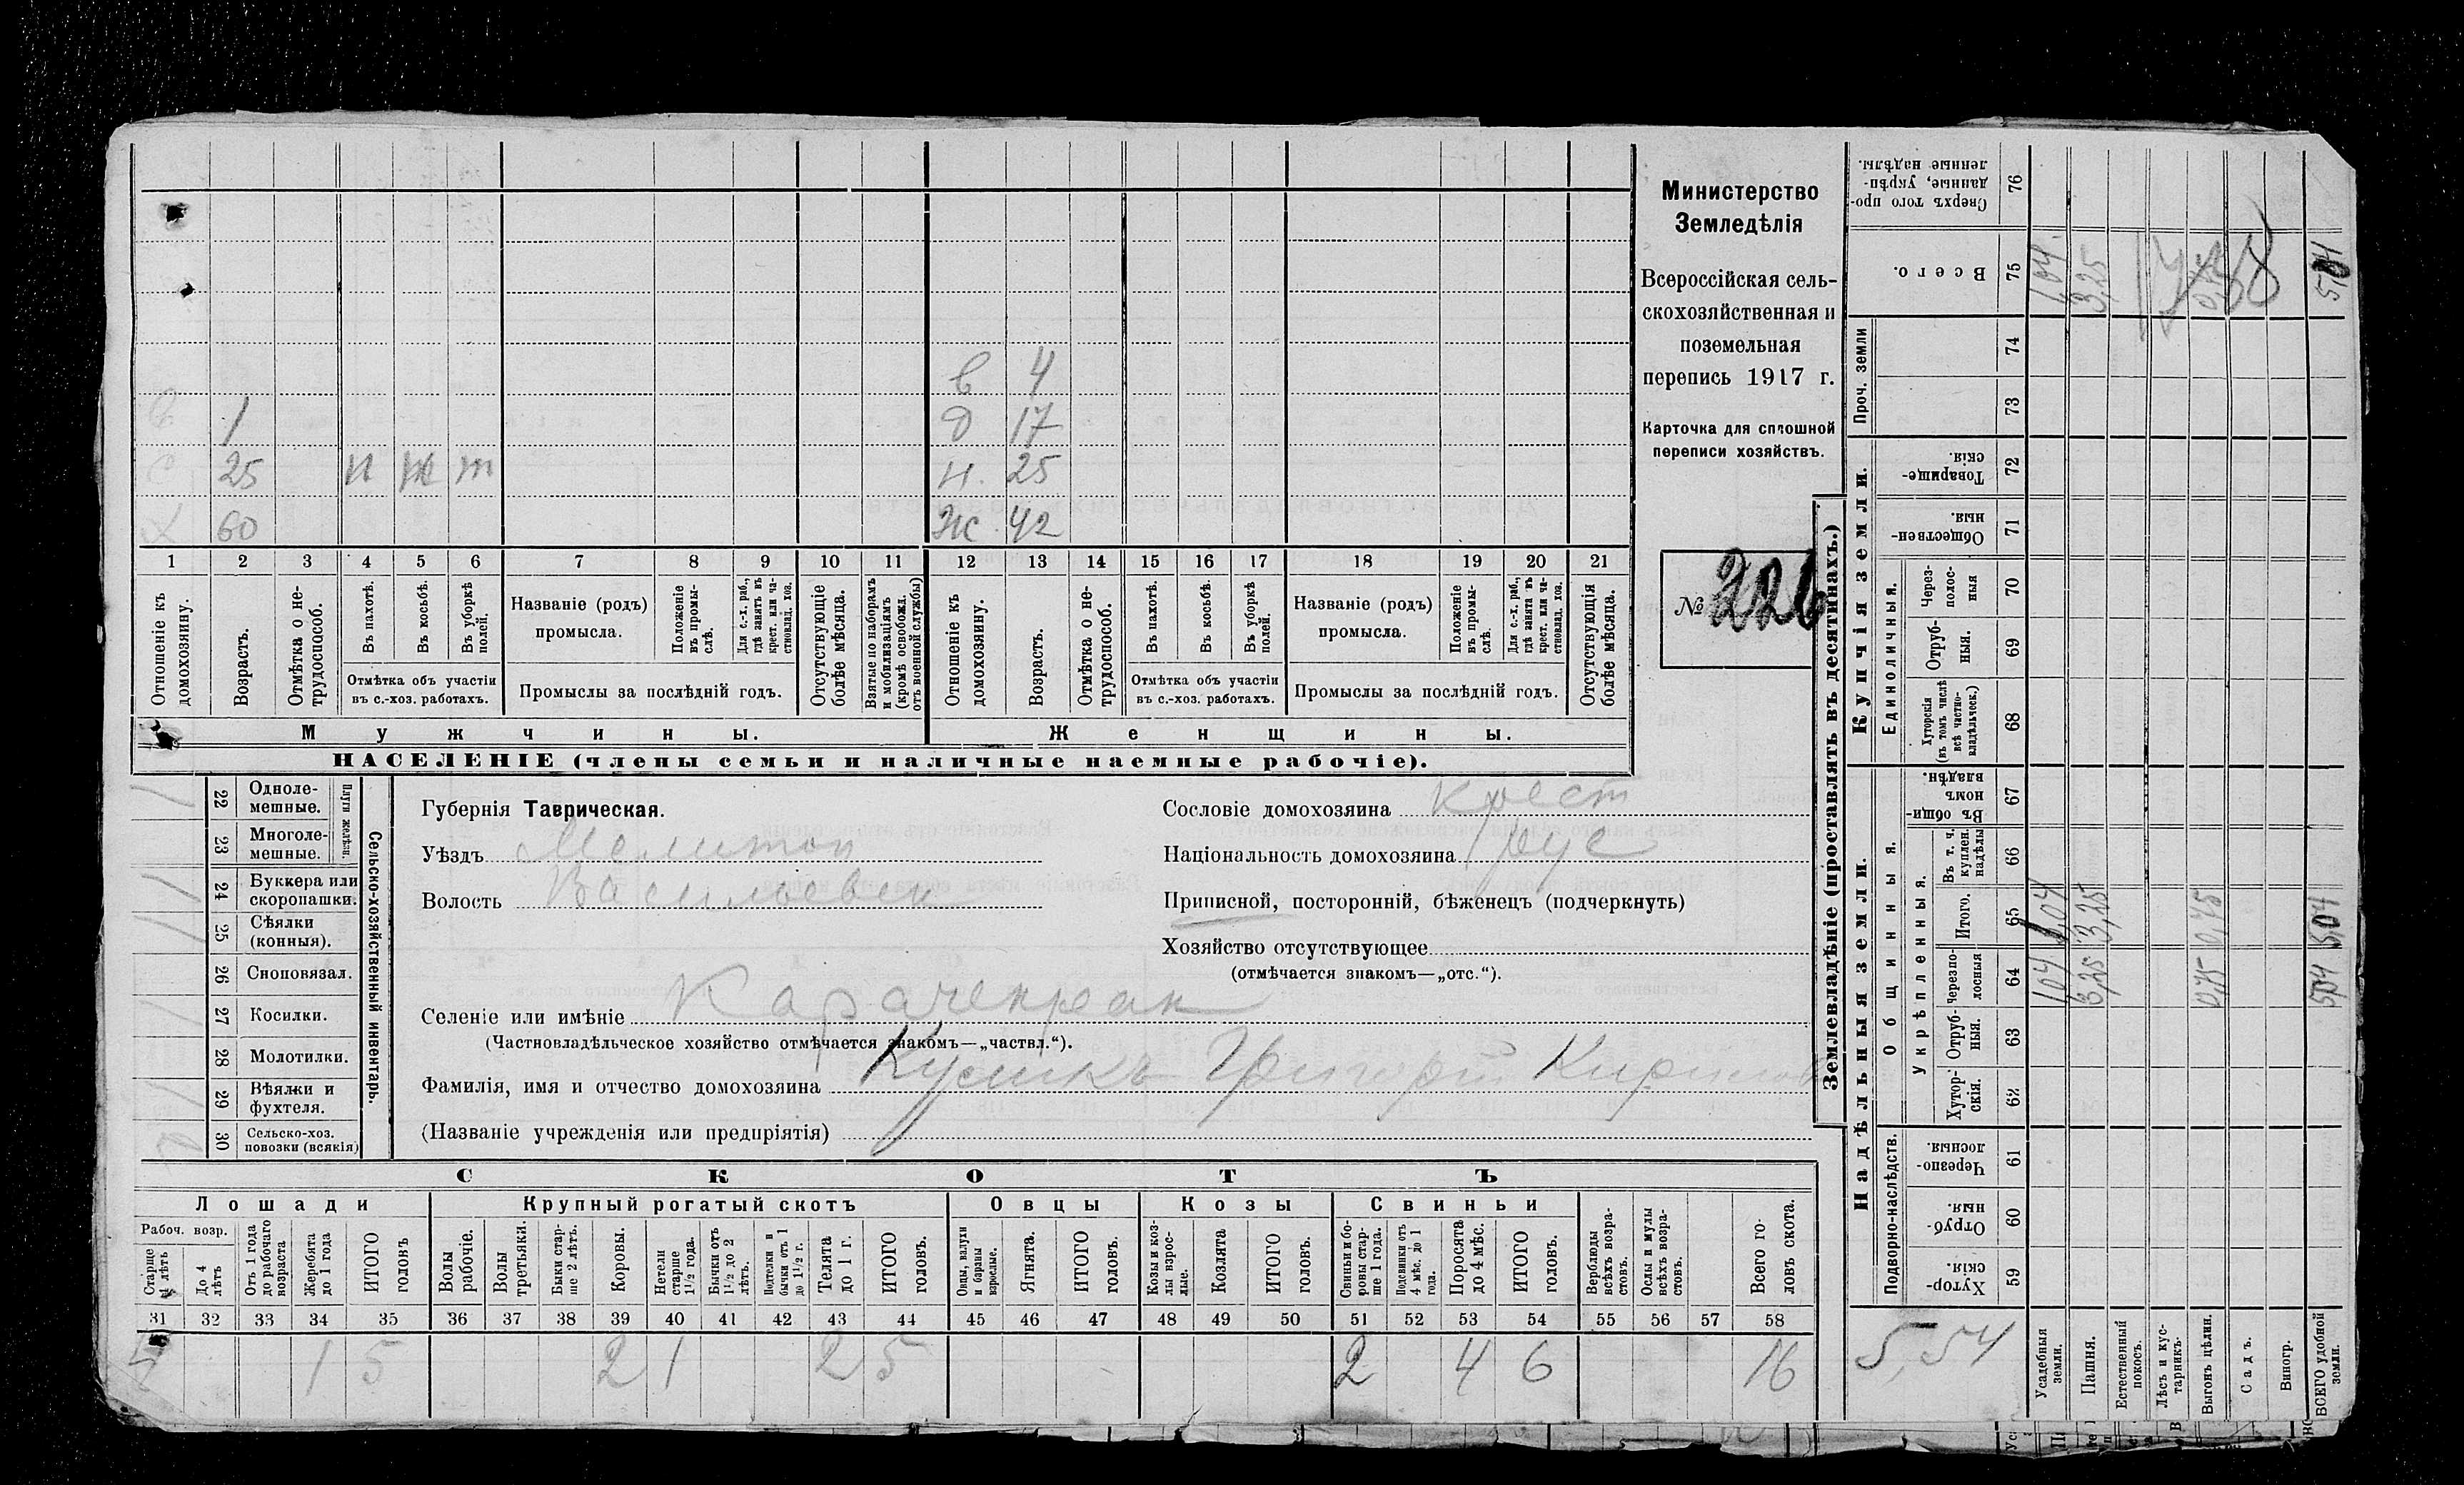 в 4
в 1 д 17
с 25 п к т н. 25
х 60 ж. 42
1 2 3 4 5 6 7 8 9 10 11 12 13 14 15 16 17 18 19 20 21
Отношеніе къ домохозяину.
Возрастъ.
Отмѣтка о не-
трудоспособ.
Въ пахотѣ.
Въ косьбѣ.
Въ уборкѣ
полей.
Отмѣтка объ участіи
въ с.-хоз. работахъ.
Названіе (родъ)
промысла.
Положеніе
въ промы-
слѣ.
Для с.-х. раб.,
гдѣ занятъ въ
крест. или ча-
стновлад. хоз.
Промыслы за послѣдній годъ.
Отсутствующіе
болѣе мѣсяца.
Взятые по наборамъ
и мобилизаціямъ
(кромѣ освобожд.
отъ военной службы)
Отношеніе къ
домохозяину.
Возрастъ.
Отмѣтка о не-
трудоспособ.
Въ пахотѣ.
Въ косьбѣ.
Въ уборкѣ
полей.
Отмѣтка объ участіи
въ с.-хоз. работахъ.
Названіе (родъ)
промысла.
Положеніе
въ промы-
слѣ.
Для с.-х. раб.,
гдѣ занята въ
крест. или ча-
стновлад. хоз.
Промыслы за послѣдній годъ.
Отсутствующія
болѣе мѣсяца.
Мужчины. Женщины.
НАСЕЛЕНІЕ (члены семьи и наличные наемные рабочіе).
Министерство
Земледѣлія
Всероссійская сель-
скохозяйственная и
поземельная
перепись 1917 г.
Карточка для сплошной
переписи хозяйствъ.
№ 226
22 Одноле-
мешные.
23 Многоле-
мешные.
Плуги желѣзн.
24 Буккера или
скоропашки.
25 Сѣялки
(конныя).
26 Сноповязал.
27 Косилки.
28 Молотилки.
29 Вѣялки и
фухтеля.
30 Сельско-хоз.
повозки (всякія)
Сельско-хозяйственный инвентарь.
Губернія Таврическая.
Уѣздъ Мелитоп
Волость Васильевск
Сословіе домохозяина крест
Національность домохозяина рус
Приписной, посторонній, бѣженецъ (подчеркнуть)
Хозяйство отсутствующее
(отмѣчается знакомъ—„отс.“).
Селеніе или имѣніе Карачекрак
(Частновладѣльческое хозяйство отмѣчается знакомъ—„частвл.“).
Фамилія, имя и отчество домохозяина Григорій Кирилов
(Названіе учрежденія или предпріятія)
СКОТЪ
Лошади Крупный рогатый скотъ Овцы Козы Свиньи
Рабоч. возр.
Старше
4 лѣтъ
До 4
лѣтъ
Отъ 1 года
до рабочаго
возраста
Жеребята
до 1 года
ИТОГО
головъ
Волы
рабочіе.
Волы
третьяки.
Быки стар-
ше 2 лѣтъ.
Коровы.
Нетели
старше
1½ года.
Бычки отъ
1½ до 2
лѣтъ.
Подтелки и
бычки отъ 1
до 1½ г.
Телята
до 1 г.
ИТОГО
головъ.
Овцы, валухи
и бараны
взрослые.
Ягнята.
ИТОГО
головъ.
Козы и коз-
лы взрос-
лые.
Козлята
ИТОГО
головъ.
Свиньи и бо-
ровы стар-
ше 1 года.
Подсвинки отъ
4 мѣс. до 1
года.
Поросята
до 4 мѣс.
ИТОГО
головъ.
Верблюды
всѣхъ возра-
стовъ.
Ослы и мулы
всѣхъ возра-
стовъ.
Всего го-
ловъ скота.
31 32 33 34 35 36 37 38 39 40 41 42 43 44 45 46 47 48 49 50 51 52 53 54 55 56 57 58
1 5 2 1 2 5 2 4 6 16
Землевладѣніе (проставлять въ десятинахъ.)
Сверхъ того про-
данные, укрѣп-
ленные надѣлы.
76
Всего.
75 1,04 3,25 5,04
Проч. земли
74
73
Купчія земли.
Товарище-
скія.
72
Обществен-
ныя.
71
Единоличныя.
Через-
полос-
ныя
70
Отруб-
ныя.
69
Хуторскія
(въ томъ числѣ
всѣ частно-
владѣльческ.)
68
Надѣльныя земли.
Общинныя.
Въ общи-
номъ
владѣн.
67
Укрѣпленныя.
Въ т. ч.
куплен.
надѣлы
66
Итого.
65 1,04 3,25 0,75 5,04
Черезпо-
лосныя
64 104 3,25 0,75 5,04
Отруб-
ныя.
63
Хутор-
скія.
62
Подворно-наслѣдств.
Черезпо-
лосныя
61
Отруб-
ныя.
60
Хутор-
скія.
59
5,54
Усадебныя
земли.
Пашня.
Естественный
покосъ.
Лѣсъ и кус-
тарникъ.
Выгонъ цѣлин.
Садъ.
Виногр.
ВСЕГО удобной
земли.